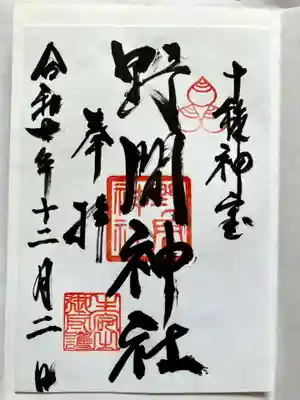 十種神宝
野間神社
奉拝
令和七年十二月二日